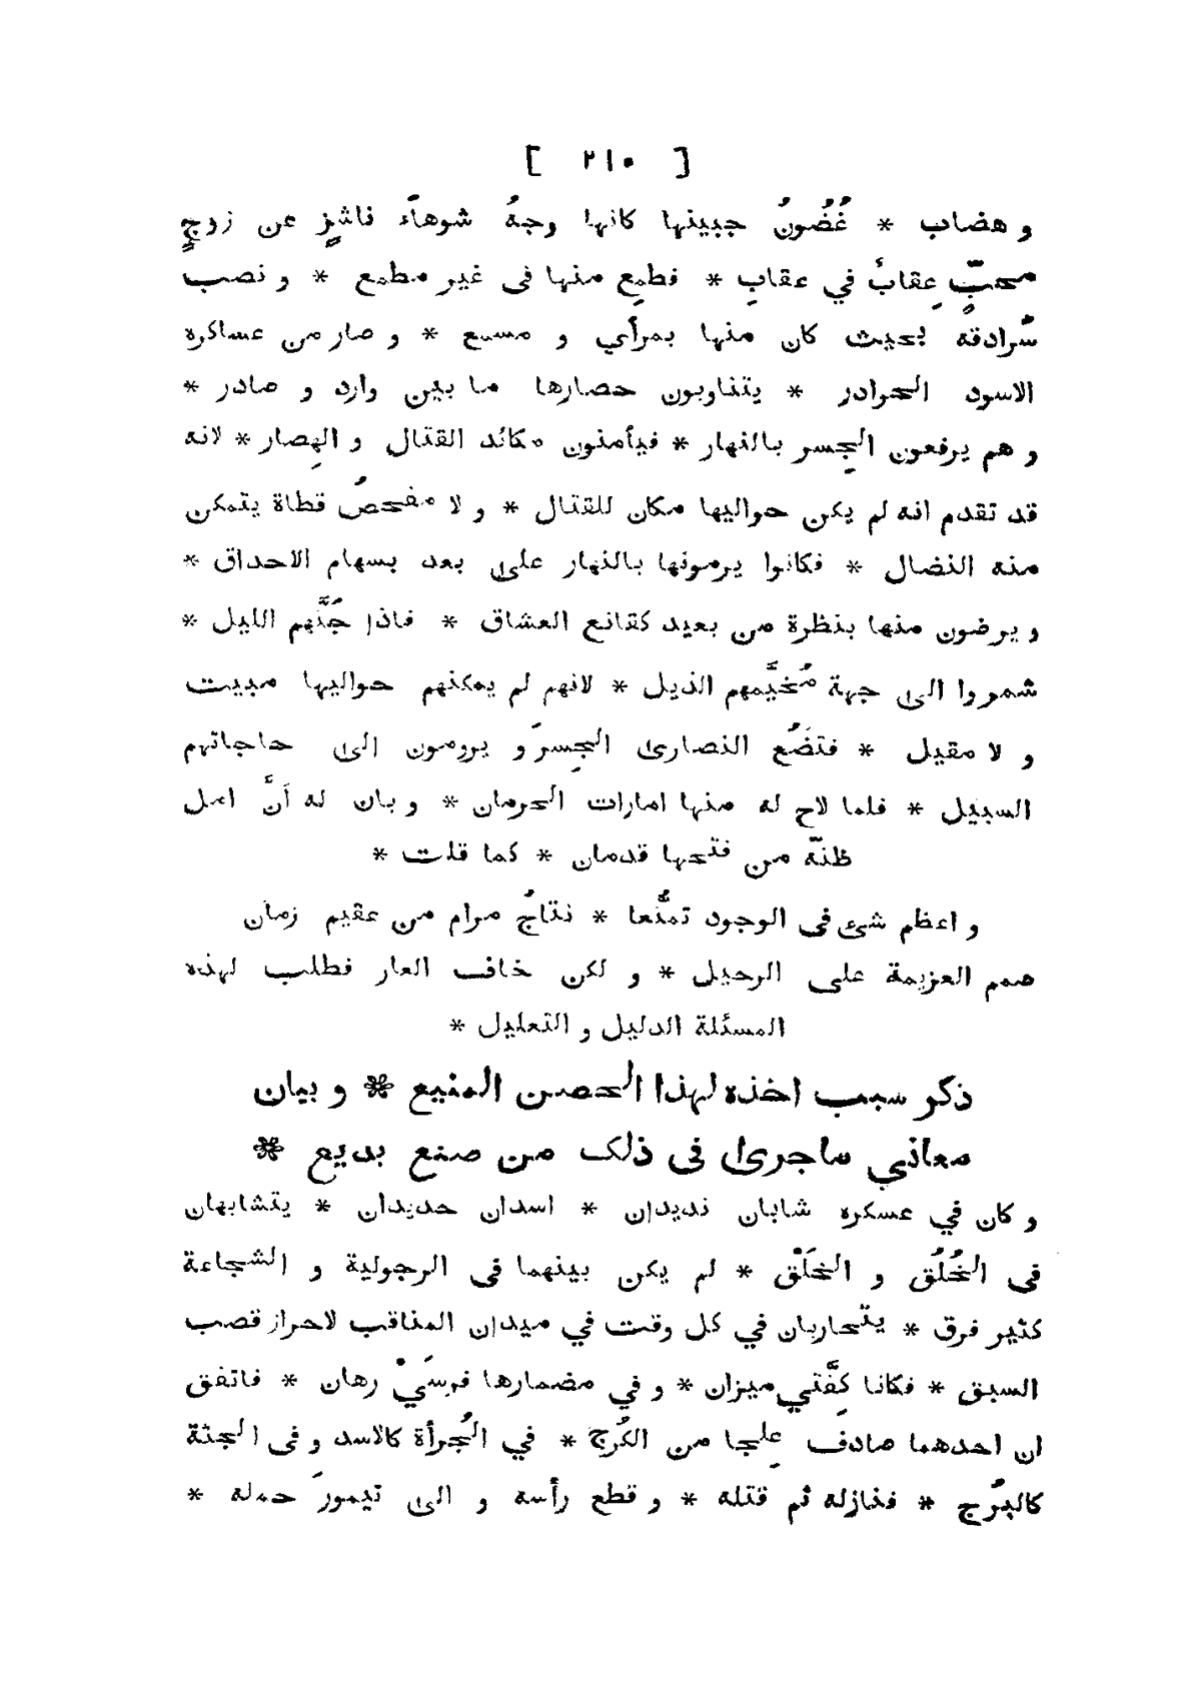 [ ٢١٠ ]
و هضاب * غُضُونُ جبينها كانها وجهُ شوهآء ناشزٍ عن زوجٍ
محبٍّ عِقابُ في عقابِ * فطمِع منها فى غير مطمع * و نصب
سُرادقه بحيث كان منها بمرأي و مسمع * و صار من عساكره
الاسود الحوادر * يتناوبون حصارها ما بين وارد و صادر *
و هم يرفعون الجِسر بالنهار * فيأمنون مكائد القتال و الهِصار * لانه
قد تقدم انه لم يكن حواليها مكان للقتال * و لا مفحصُ قطاة يتمكن
منه النضال * فكانوا يرمونها بالنهار على بعد بسهام الاحداق *
و يرضون منها بنظرة من بعيد كقانع العشاق * فاذا جَنَّهم الليل *
شمروا الى جهة مُخيَّمهم الذيل * لانهم لم يمكنهم حواليها مبيت
و لا مقيل * فتضَع النصارى الجِسرَ و يرومون الى حاجاتهم
السبيل * فلما لاح له منها امارات الحرمان * و بان له اَنَّ امل
ظنّه من فتحها قدمان * كما قلت *
و اعظم شئ فى الوجود تمنُّعا * نتاجُ مرام من عقيم زمان
صمم العزيمة على الرحيل * و لكن خاف العار فطلب لهذه
المسئلة الدليل و التعليل *
ذكر سبب اخذه لهذا الحصن المنيع * و بيان
معاني ماجرى فى ذلك من صنع بديع *
و كان في عسكره شابان نديدان * اسدان حديدان * يتشابهان
فى الخُلُق و الخَلْق * لم يكن بينهما فى الرجولية و الشجاعة
كثير فرق * يتّحاربان في كل وقت في ميدان المناقب لاحراز قصب
السبق * فكانا كِفَّتي ميزان * و في مضمارها فرسَيْ رهان * فاتفق
ان احدهما صادفَ عِلجا من الكُرج * في الجُرأة كالاسد و فى الجثة
كالبُرج * فنازله ثم قتله * و قطع رأسه و الى تيمورَ حمله *